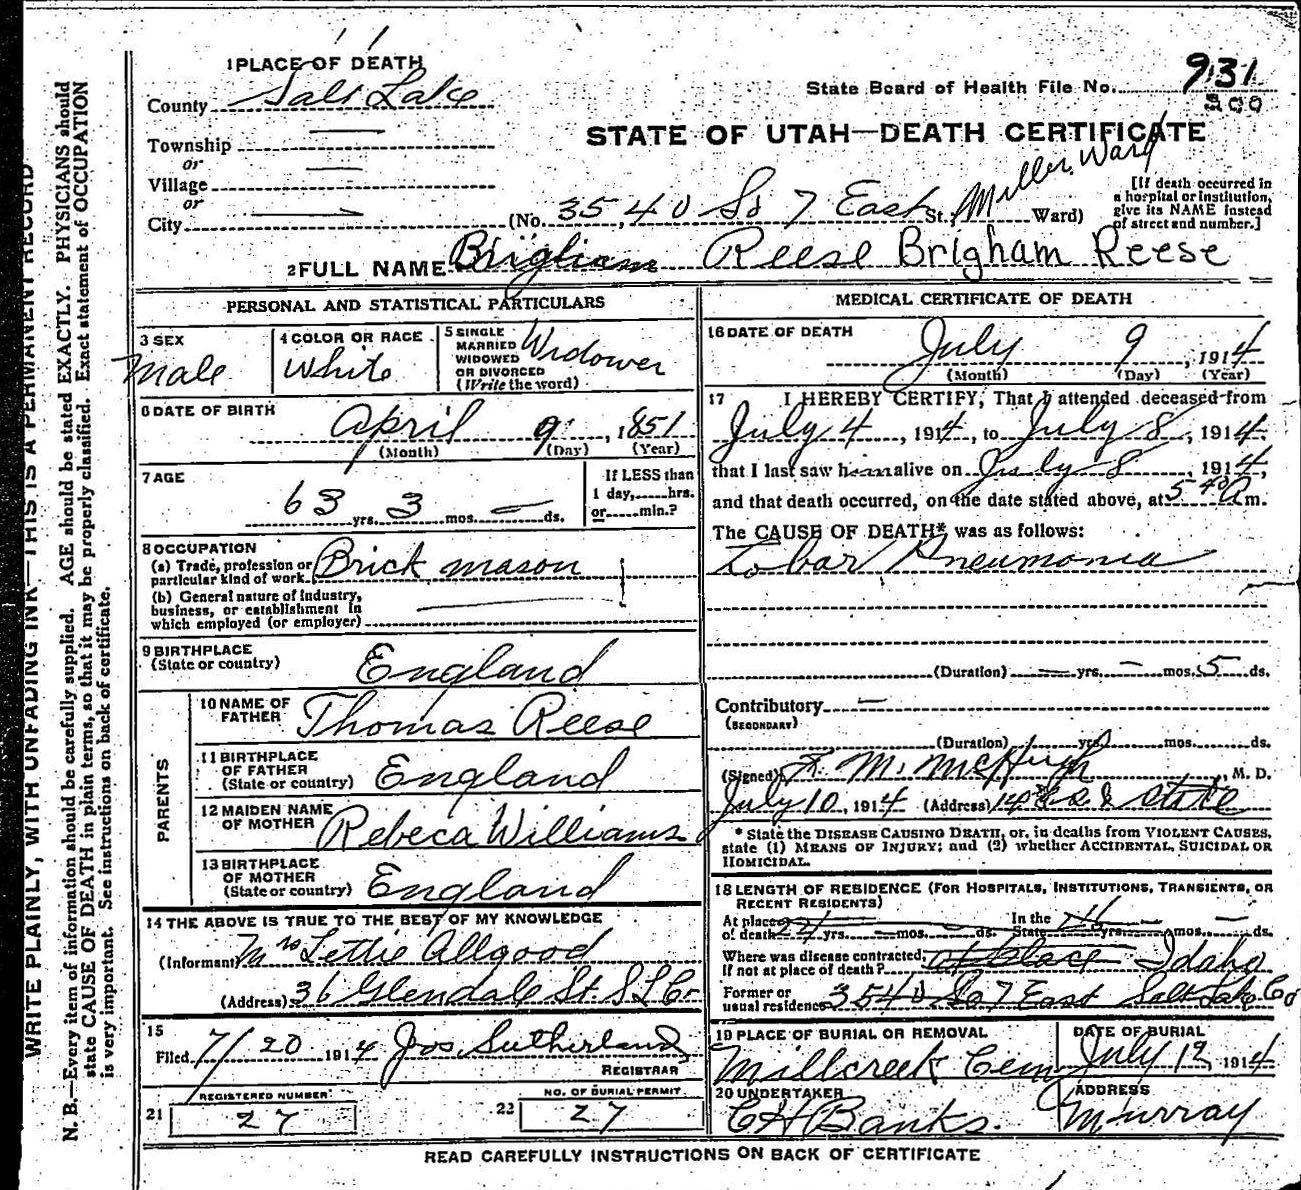 1 PLACE OF DEATH
County Salt Lake
Township
or
Village
or
City
State Board of Health File No. 931
200
STATE OF UTAH—DEATH CERTIFICATE
(No. 3540 So 7 East St., Miller Ward Ward)
[If death occurred in a hospital or institution, give its NAME instead of street and number.]
2 FULL NAME Brigham Reese Brigham Reese
PERSONAL AND STATISTICAL PARTICULARS
3 SEX Male
4 COLOR OR RACE White
5 SINGLE MARRIED WIDOWED OR DIVORCED (Write the word) Widower
6 DATE OF BIRTH April 9, 1851
(Month) (Day) (Year)
7 AGE 63 yrs. 3 mos. — ds.
If LESS than 1 day,.....hrs. or.....min.?
8 OCCUPATION
(a) Trade, profession or particular kind of work. Brick mason
(b) General nature of industry, business, or establishment in which employed (or employer)
9 BIRTHPLACE (State or country) England
PARENTS
10 NAME OF FATHER Thomas Reese
11 BIRTHPLACE OF FATHER (State or country) England
12 MAIDEN NAME OF MOTHER Rebeca Williams
13 BIRTHPLACE OF MOTHER (State or country) England
14 THE ABOVE IS TRUE TO THE BEST OF MY KNOWLEDGE
(Informant) Mrs Lettie Allgood
(Address) 36 Glendale St. S L Co.
15
Filed 7/20 1914 Jos Sutherland
REGISTRAR
REGISTERED NUMBER
21 27
NO. OF BURIAL PERMIT
22 27
MEDICAL CERTIFICATE OF DEATH
16 DATE OF DEATH July 9, 1914
(Month) (Day) (Year)
17 I HEREBY CERTIFY, That I attended deceased from
July 4, 1914, to July 8, 1914.
that I last saw him alive on July 8, 1914,
and that death occurred, on the date stated above, at 5 40 a m.
The CAUSE OF DEATH* was as follows:
Lobar Pneumonia
(Duration) — yrs. — mos. 5 ds.
Contributory —
(SECONDARY)
(Duration) yrs. mos. ds.
(Signed) F. M. McHugh, M. D.
July 10, 1914 (Address) State
* State the DISEASE CAUSING DEATH, or, in deaths from VIOLENT CAUSES, state (1) MEANS OF INJURY; and (2) whether ACCIDENTAL, SUICIDAL OR HOMICIDAL.
18 LENGTH OF RESIDENCE (FOR HOSPITALS, INSTITUTIONS, TRANSIENTS, OR RECENT RESIDENTS)
At place of death 24 yrs. — mos. — ds. In the State yrs. — mos. — ds.
Where was disease contracted, if not at place of death? at place Idaho
Former or usual residence 3540 So 7 East Salt Lake Co
19 PLACE OF BURIAL OR REMOVAL
Millcreek Cem
DATE OF BURIAL
July 12, 1914
20 UNDERTAKER
C H Banks.
ADDRESS
Murray
READ CAREFULLY INSTRUCTIONS ON BACK OF CERTIFICATE
WRITE PLAINLY, WITH UNFADING INK—THIS IS A PERMANENT RECORD
N. B.—Every item of information should be carefully supplied. AGE should be stated EXACTLY. PHYSICIANS should
state CAUSE OF DEATH in plain terms, so that it may be properly classified. Exact statement of OCCUPATION
is very important. See instructions on back of certificate.